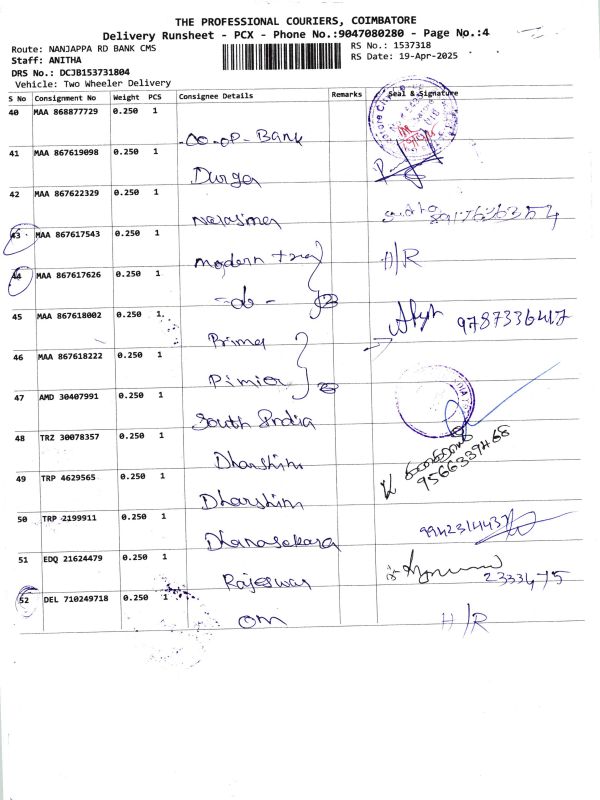 THE PROFESSIONAL COURIERS, COIMBATORE
Delivery Runsheet - PCX - Phone No.:9047080280 - Page No.:4
Route: NANJAPPA RD BANK CMS
RS No.: 1537318
Staff: ANITHA
RS Date: 19-Apr-2025
DRS No.: DCJB153731804
Vehicle: Two Wheeler Delivery
S No Consignment No Weight PCS Consignee Details Remarks Seal & Signature
40 MAA 868877729 0.250 1 CO-OP-Bank
41 MAA 867619098 0.250 1 Durga
42 MAA 867622329 0.250 1
43 MAA 867617543 0.250 1 Modern A/R
44 MAA 867617626 0.250 1 -do-
45 MAA 867618002 0.250 1 Prima 9787336417
46 MAA 867618222 0.250 1
47 AMD 30407991 0.250 1 South India
48 TRZ 30078357 0.250 1 Dharshini
9566339468
49 TRP 4629565 0.250 1 Dharshini
50 TRP 2199911 0.250 1 Dhanasekara 9942314437
51 EDQ 21624479 0.250 1 Rajeswari 2333475
52 DEL 710249718 0.250 1 OM A/R